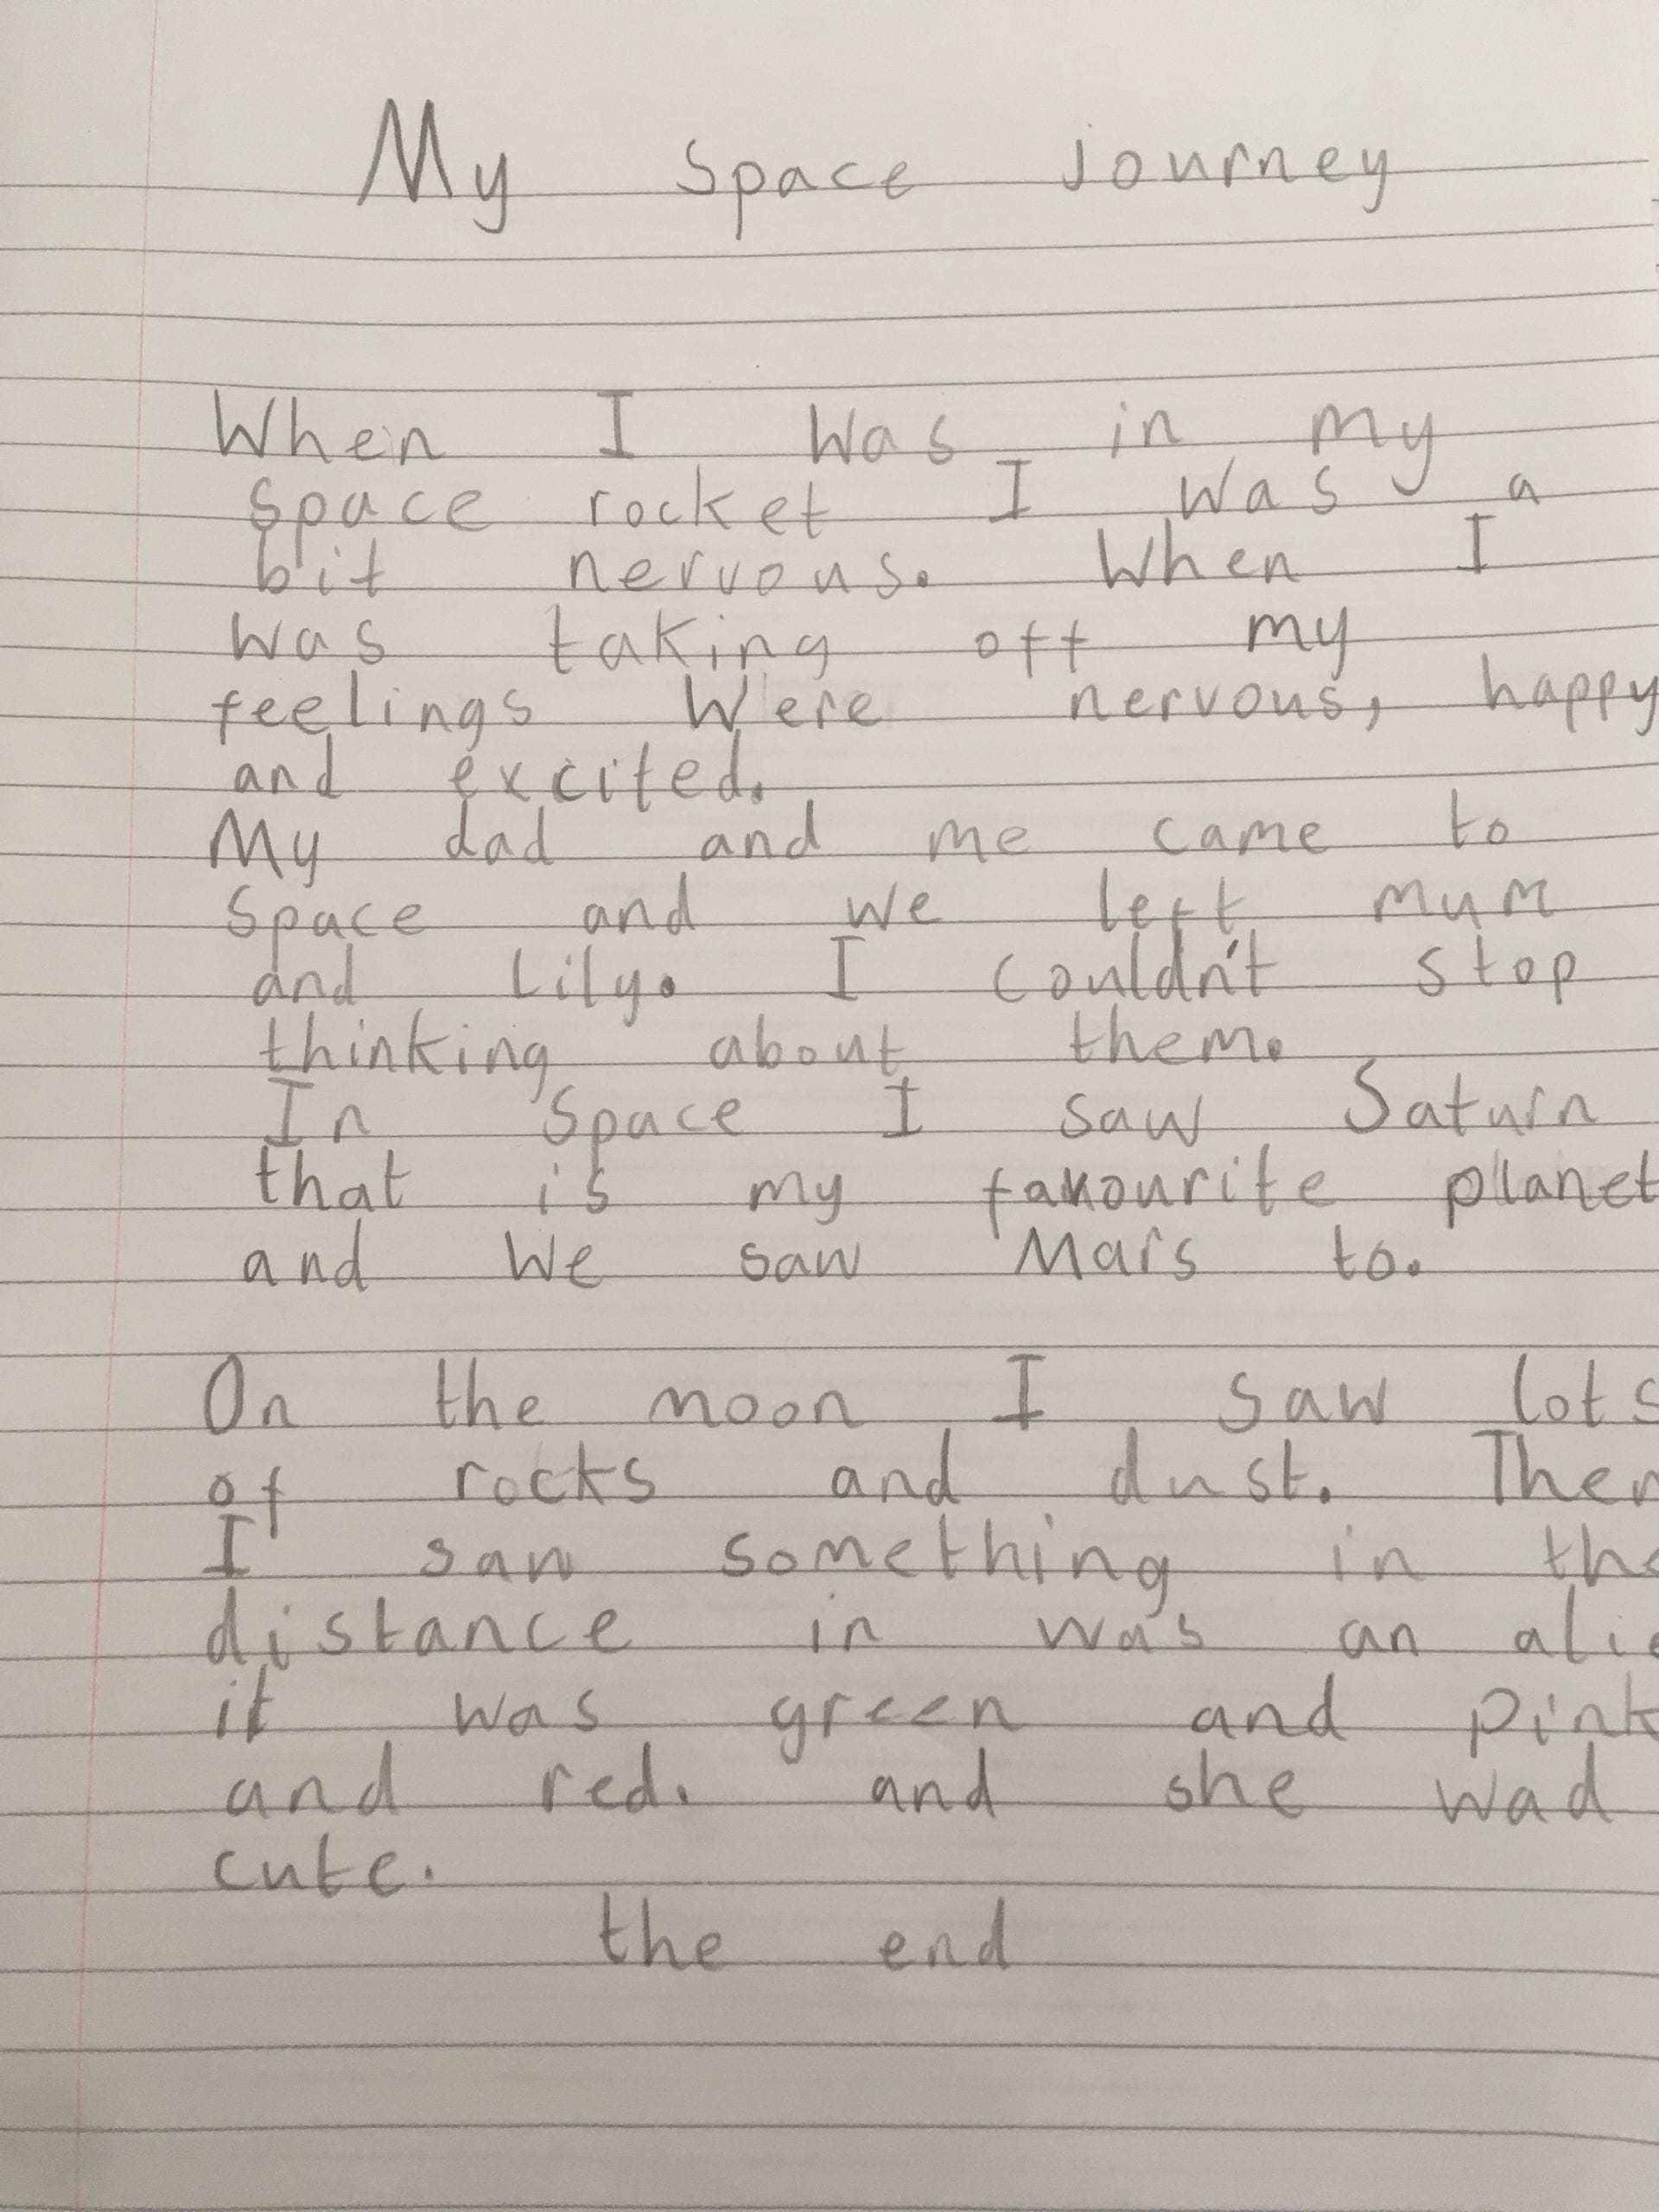 My space journey
When I was in my
space rocket I was a
bit nervous. When I
was taking off my
feelings were nervous, happy
and excited.
My dad and me came to
space and we left mum
and Lily. I couldn't stop
thinking about them.
In space I saw Saturn
that is my favourite planet
and we saw Mars to.
On the moon I saw lots
of rocks and dust. Then
I saw something in the
distance in was an alie
it was green and pink
and red. and she wad
cute.
the end